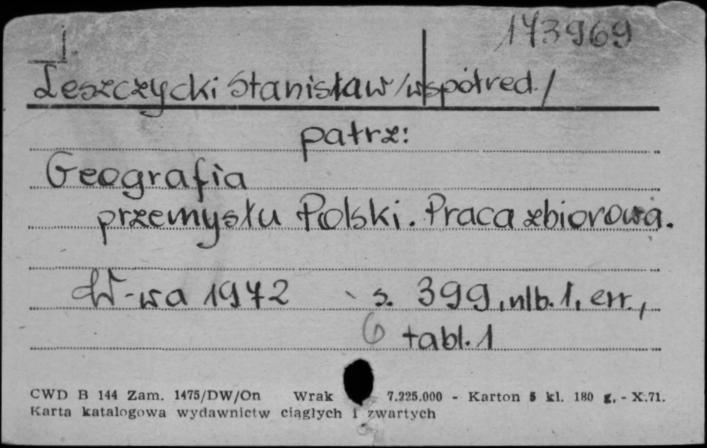 173969
Leszczycki Stanisław /współred./
patrz:
Geografia
przemysłu Polski. Praca zbiorowa.
W-wa 1972 s. 399, nlb. 1, err.,
6 tabl. 1
CWD B 144 Zam. 1475/DW/On Wrak 7.225.000 - Karton 5 kl. 180 g. - X.71.
Karta katalogowa wydawnictw ciągłych i zwartych